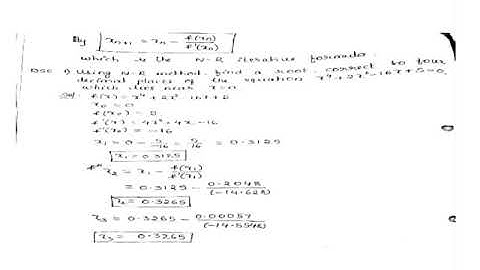 By x_{n+1} = x_n - f(x_n)/f'(x_n)
which is the N-R iterative formula.
1) Using N-R method find a root, correct to four
decimal places of the equation
which lies near x=0
x_0 = 0
f(x_0) = 5
f'(x) = 4x³+4x-16
f'(x_0) = -16
x_1 = 0 - 5/-16 = 5/16 = 0.3125
x_1 = 0.3125
x_2 = x_1 - f(x_1)/f'(x_1)
= 0.3125 - 0.2048/(-14.628)
x_2 = 0.3265
x_3 = 0.3265 - 0.00057/(-14.5548)
x_3 = 0.3265